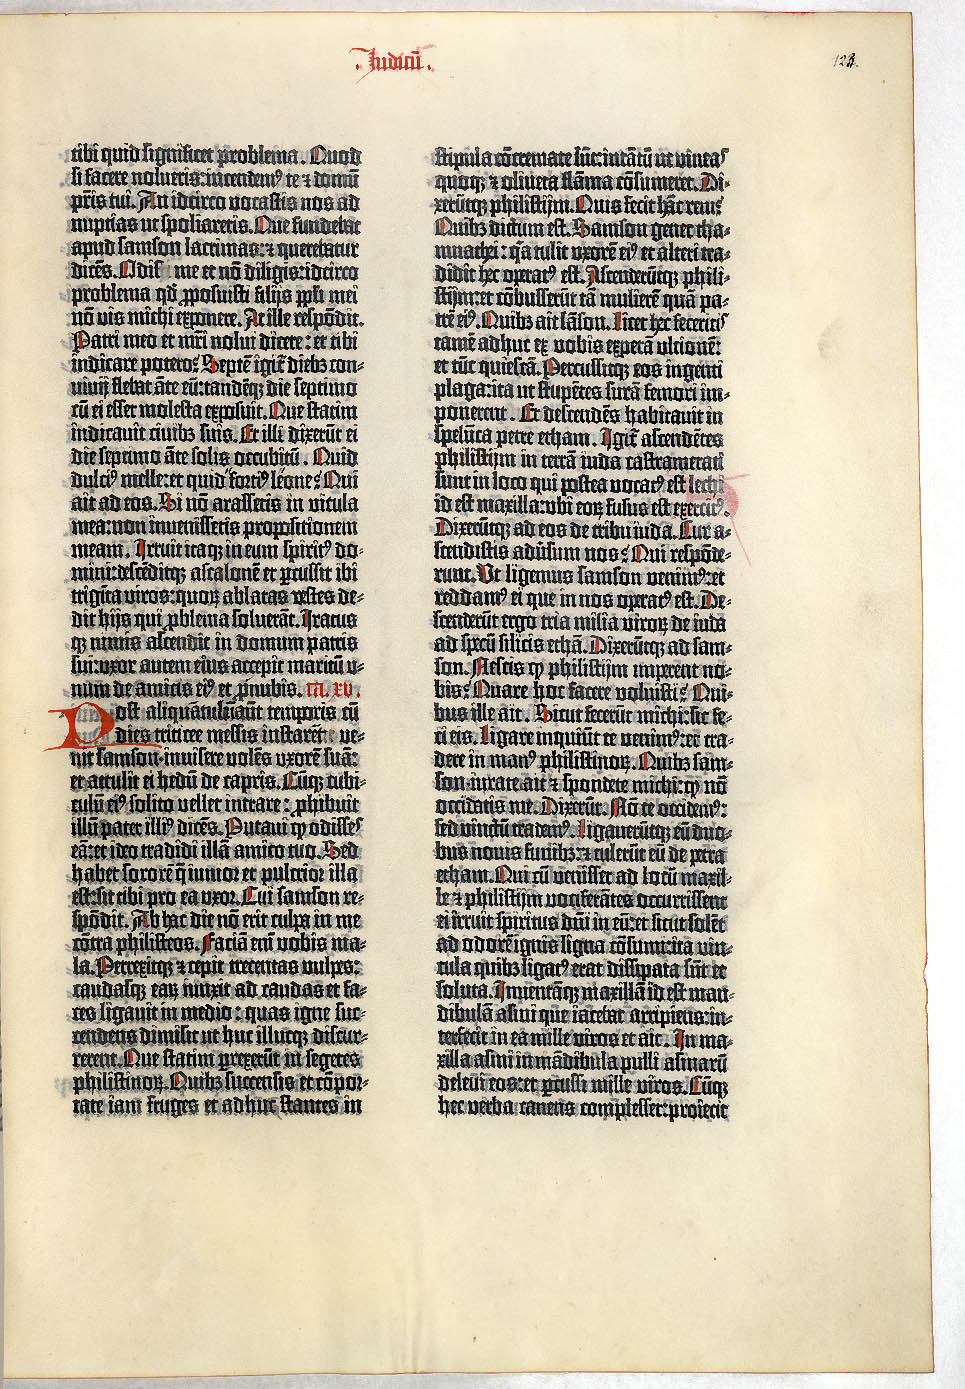 Judicū
123.
tibi quid significet problema. Quod
si facere nolueris: incendemꝰ te ⁊ domū
pr̄is tui. An idcirco vocastis nos ad
nuptias ut spoliaretis. Que fundebat
apud samson lacrimas: ⁊ querebatur
dicēs. Odisti me et nō diligis: idcirco
problema qd̄ ꝓposuisti filijs ppl̄i mei
nō vis michi exponere. At ille respōdit.
Patri meo et mr̄i nolui dicere: et tibi
indicare potero? Septē igit̄ diebꝫ con-
vivij flebat āte eū: tandēqꝫ die septimo
cū ei esset molesta exposuit. Que statim
indicauit ciuibꝫ suis. Et illi dixerūt ei
die septimo āte solis occubitū. Quid
dulciꝰ melle: et quid fortiꝰ leone? Qui
ait ad eos. Si nō arassetis in vitula
mea: non invenissetis propositionem
meam. Irruit itaqꝫ in eum spiritꝰ do-
mini: descēditqꝫ ascalonē et ꝑcussit ibi
triginta viros: quoꝝ ablatas vestes de-
dit hijs qui ꝓblema soluerāt. Iratus
qꝫ nimis ascendit in domum patris
sui: vxor autem eius accepit maritū u-
num de amicis eiꝰ et ꝓnubis. ca. xv.
Post aliquātulū aūt temporis cū
dies triticee messis instarēt: ve-
nit samson invisere volēs vxorē suā:
et attulit ei hedū de capris. Cūqꝫ cubi-
culū eiꝰ solito vellet intrare: ꝓhibuit
illū pater illiꝰ dicēs. Putaui ꝙ odisses
eā: et ideo tradidi illā amico tuo. Sed
habet sororē q̄ iunior et pulcrior illa
est: sit tibi pro ea vxor. Cui samson re-
spōdit. Ab hac die nō erit culpa in me
cōtra philisteos. Faciā eni vobis ma-
la. Perrexitqꝫ ⁊ cepit trecentas vulpes:
caudasqꝫ eaꝝ iunxit ad caudas et fa-
ces ligauit in medio: quas igne suc-
cendens dimisit ut huc illucqꝫ discur-
rerent. Que statim ꝑrexerūt in segetes
philistinoꝝ. Quibꝫ succensis et cōpor-
tate iam fruges et adhuc stantes in
stipula cōcremate sūt: intātū ut vineas
quoqꝫ ⁊ oliveta flāma cōsumeret. Di-
xerūtqꝫ philistijm. Quis fecit hāc rem?
Quibꝫ dictum est. Samson gener tha-
mnathei: q̄a tulit vxorē eiꝰ et alteri tra-
didit hec operatꝰ est. Ascenderūtqꝫ phili-
stijm: et cōbusserūt tā mulierē quā pa-
trē eiꝰ. Quibꝫ ait sāson. Licet hec feceritis
tamē adhuc ex vobis expetā vltionē:
et tūc quiescā. Percussitqꝫ eos ingenti
plaga: ita ut stupētes surā femori im-
ponerent. Et descendēs habitauit in
spelūca petre etham. Igit̄ ascendētes
philistijm in terrā iuda castrametati
sunt in loco qui postea vocatꝰ est lechi
id est maxilla: vbi eoꝝ fusus est exercitꝰ.
Dixerūtqꝫ ad eos de tribu iuda. Cur a-
scendistis adūsum nos? Qui respōde-
runt. Ut ligemus samson venimꝰ: et
reddamꝰ ei que in nos operatꝰ est. De-
scenderūt ergo tria milia viroꝝ de iuda
ad specū silicis ethā. Dixerūtqꝫ ad sam-
son. Nescis ꝙ philistijm imperent no-
bis? Quare hoc facere voluisti? Qui-
bus ille ait. Sicut fecerūt michi: sic fe-
ci eis. Ligare inquiūt te venimꝰ: et tra-
dere in manꝰ philistinoꝝ. Quibꝫ sam-
son iurate ait ⁊ spondete michi: ꝙ nō
occidatis me. Dixerūt. Nō te occidemꝰ:
sed vinctū trademꝰ. Ligauerūtqꝫ eū duo-
bus nouis funibꝫ: ⁊ tulerūt eū de petra
etham. Qui cū venisset ad locū maxil-
le ⁊ philistijm vociferātes occurrissent
ei irruit spiritus dn̄i in eū: et sicut solēt
ad odorē ignis ligna cōsumi: ita vin-
cula quibꝫ ligatꝰ erat dissipata sūt et
soluta. Inuentāqꝫ maxillā id est man-
dibulā asini que iacebat arripiens: in-
terfecit in ea mille viros et ait. In ma-
xilla asini in mādibula pulli asinarū
deleui eos: et ꝑcussi mille viros. Cūqꝫ
hec verba canens complesset: proiecit